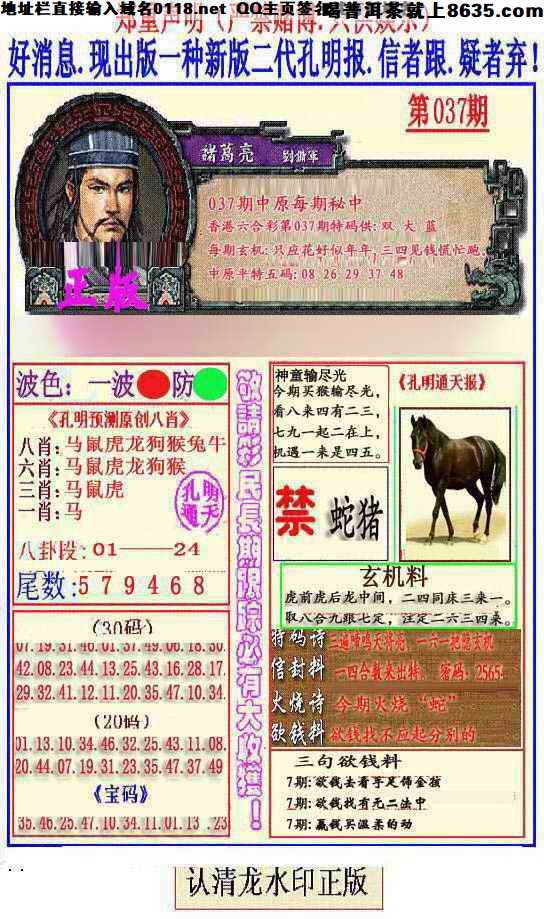 地址栏直接输入域名0118.net QQ主页签名
喝普洱茶就上8635.com
郑重声明(严禁赌博.只供娱乐)
好消息.现出版一种新版二代孔明报.信者跟.疑者弃!
第037期
諸葛亮 劉備軍
037期中原每期秘中
香港六合彩第037期特码供:双 大 蓝
每期玄机:只应花好似年年,三四见钱慌忙跑.
中原平特五码:08 26 29 37 48
正版
波色:一波 防
《孔明预测原创八肖》
八肖:马鼠虎龙狗猴兔牛
六肖:马鼠虎龙狗猴
三肖:马鼠虎
一肖:马
孔明
通天
八卦段:01——24
尾数:579468
(30码)
07.19.31.46.01.37.49.06.18.30.
42.08.23.44.13.25.43.16.28.17.
29.32.41.12.11.20.35.47.10.34.
(20码)
01.13.10.34.46.32.25.43.11.08.
20.44.07.19.31.23.35.47.37.49
《宝码》
35.46.25.47.10.34.11.01.13 .23
敬請彩民長期跟踪必有大收獲!
神童输尽光
今期买猴输尽光,
看八来四有二三,
七九一起二在上,
机遇一来是四五。
《孔明通天报》
禁 蛇猪
玄机料
虎前虎后龙中间,二四同床三来一。
取八合九跟七定,注定二六三四来。
特码诗
信封料 一四合数来出特. 密码:2565.
火烧诗 今期火烧“蛇”
欲钱料 欲钱找不应起分别的
三句欲钱料
7期:欲钱去看手足饰金孩
7期:欲钱找有无二法中
7期:赢钱买温柔的动
认清龙水印正版